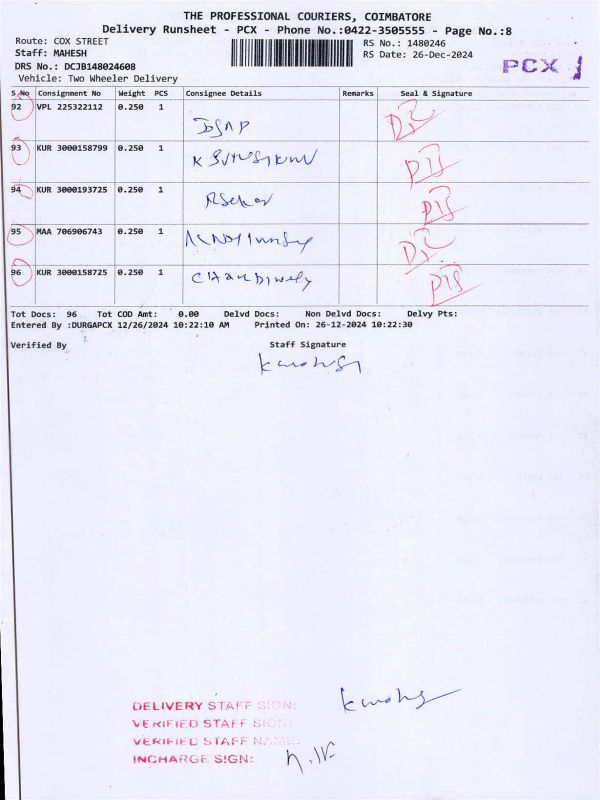 THE PROFESSIONAL COURIERS, COIMBATORE
Delivery Runsheet - PCX - Phone No.:0422-3505555 - Page No.:8
Route: COX STREET RS No.: 1480246
Staff: MAHESH RS Date: 26-Dec-2024
DRS No.: DCJB148024608
PCX 1
Vehicle: Two Wheeler Delivery
S.No Consignment No Weight PCS Consignee Details Remarks Seal & Signature
92 VPL 225322112 0.250 1
93 KUR 3000158799 0.250 1
94 KUR 3000193725 0.250 1
95 MAA 706906743 0.250 1
96 KUR 3000158725 0.250 1
Tot Docs: 96 Tot COD Amt: 0.00 Delvd Docs: Non Delvd Docs: Delvy Pts:
Entered By :DURGAPCX 12/26/2024 10:22:10 AM Printed On: 26-12-2024 10:22:30
Verified By Staff Signature
DELIVERY STAFF SIGN:
VERIFIED STAFF SIGN:
VERIFIED STAFF NAME:
INCHARGE SIGN: